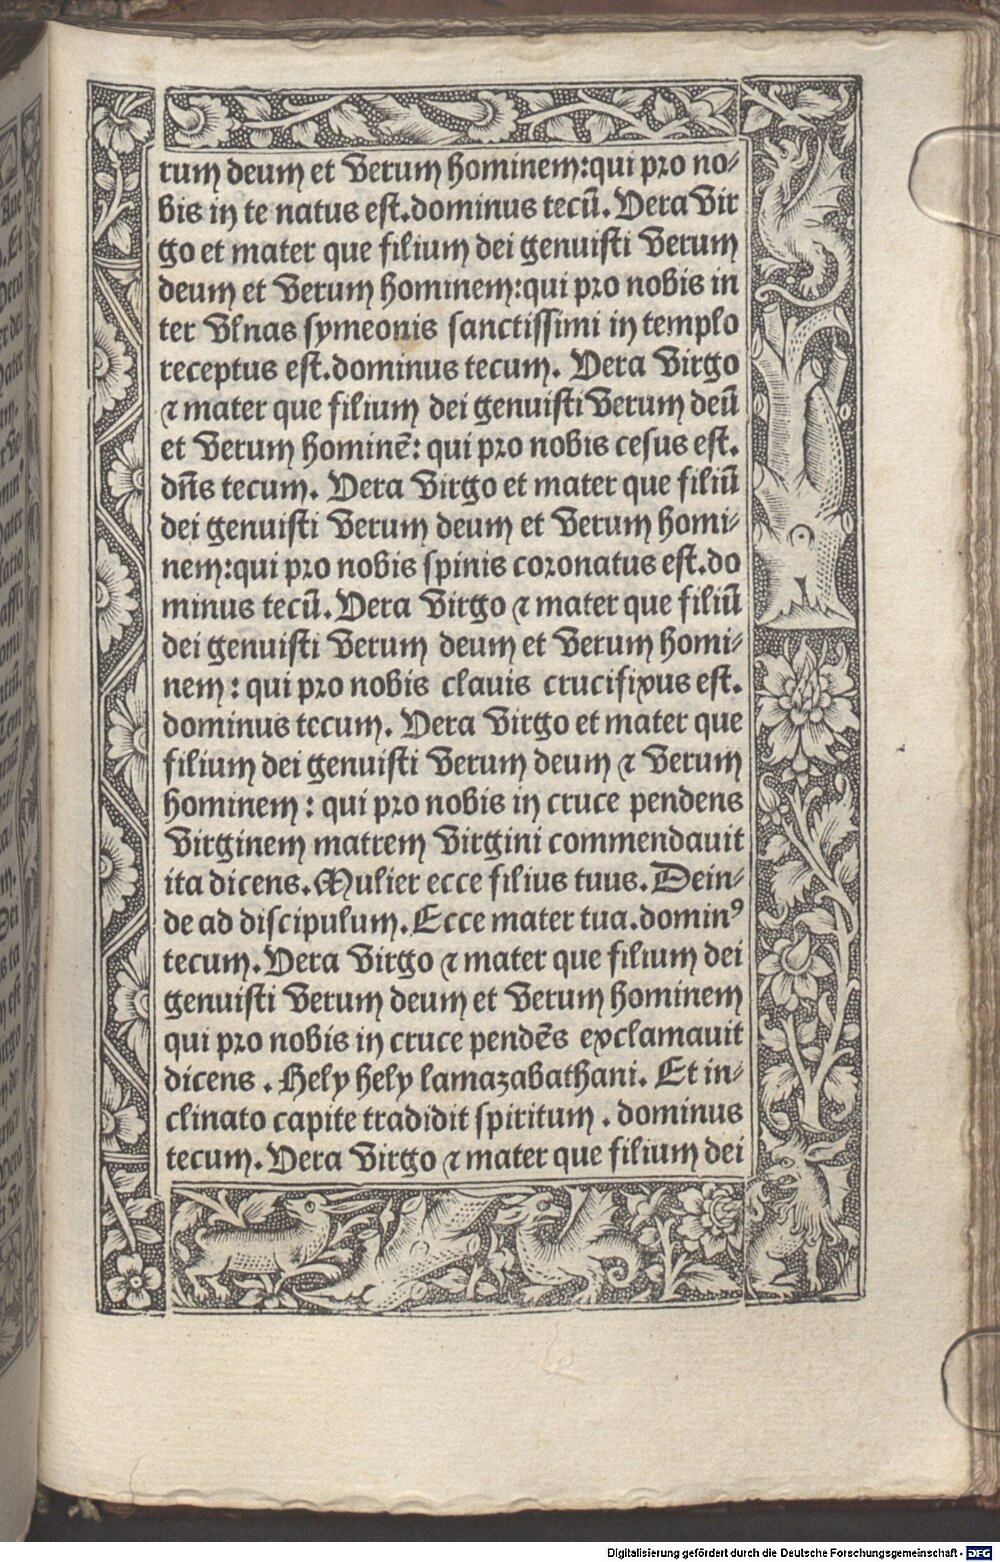 rum deum et verum hominem:qui pro no⸗
bis in te natus est.dominus tecū. Vera vir
go et mater que filium dei genuisti verum
deum et verum hominem:qui pro nobis in
ter vlnas symeonis sanctissimi in templo
receptus est.dominus tecum. Vera virgo
⁊ mater que filium dei genuisti verum deū
et verum hominē: qui pro nobis cesus est.
dn̄s tecum. Vera virgo et mater que filiū
dei genuisti verum deum et verum homi⸗
nem:qui pro nobis spinis coronatus est.do
minus tecū. Vera virgo ⁊ mater que filiū
dei genuisti verum deum et verum homi⸗
nem : qui pro nobis clauis crucifixus est.
dominus tecum. Vera virgo et mater que
filium dei genuisti verum deum ⁊ verum
hominem : qui pro nobis in cruce pendens
virginem matrem virgini commendauit
ita dicens. Mulier ecce filius tuus. Dein⸗
de ad discipulum. Ecce mater tua.dominꝰ
tecum. Vera virgo ⁊ mater que filium dei
genuisti verum deum et verum hominem
qui pro nobis in cruce pendēs exclamauit
dicens . Hely hely lamazabathani. Et in⸗
clinato capite tradidit spiritum . dominus
tecum. Vera virgo ⁊ mater que filium dei
Digitalisierung gefördert durch die Deutsche Forschungsgemeinschaft - DFG